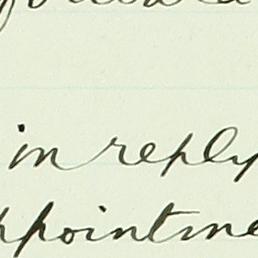 in reply
appointme